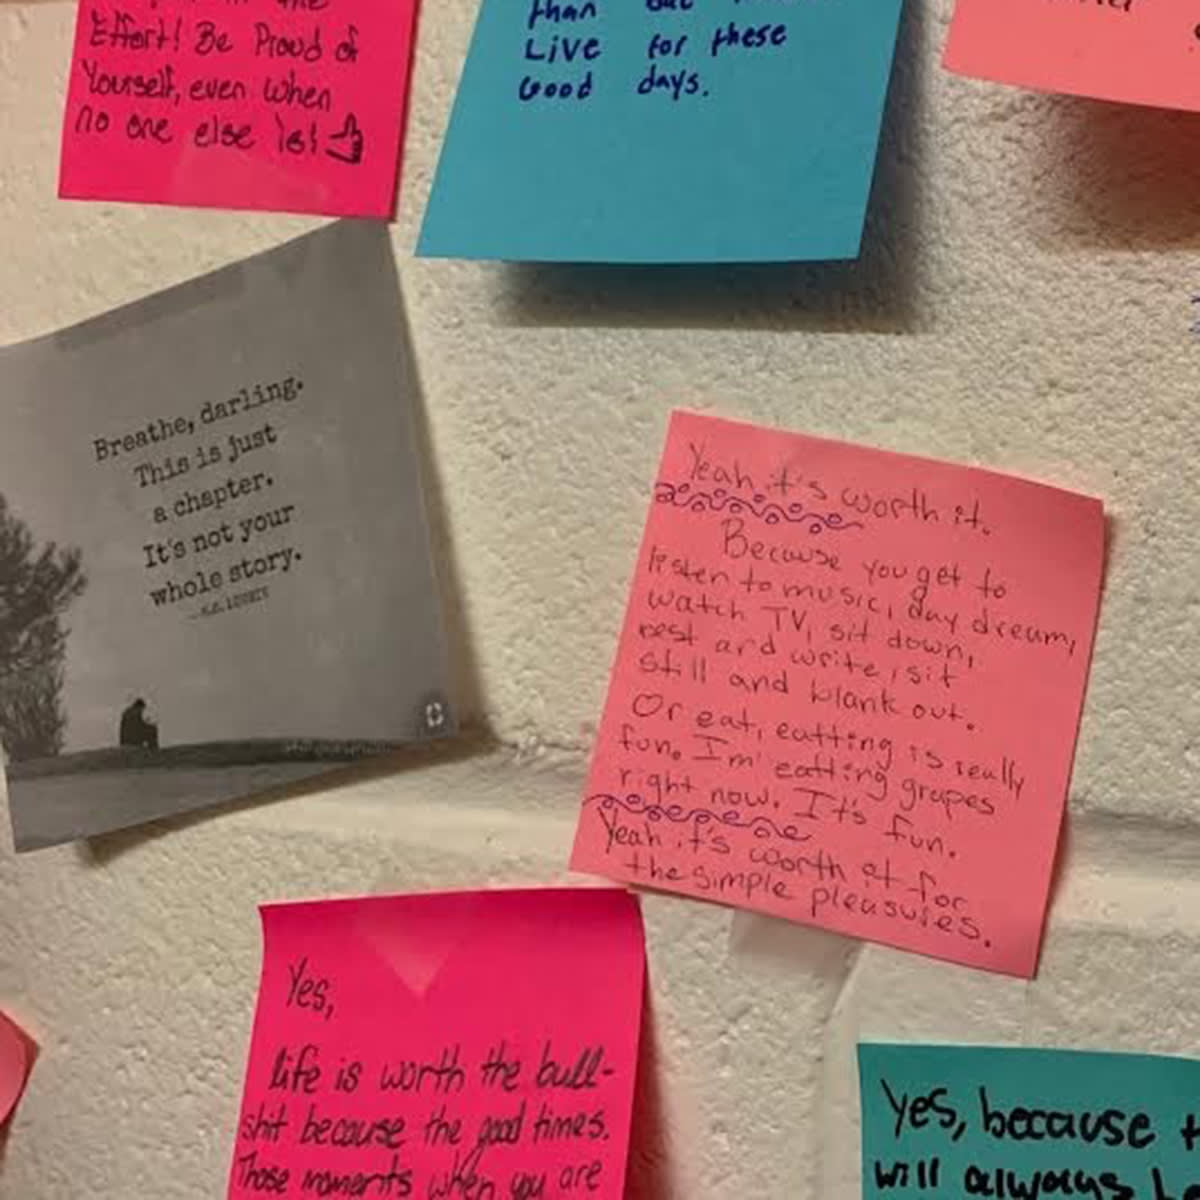 Effort! Be Proud of
Yourself, even when
no one else is!
than
Live for these
Good days.
Breathe, darling.
This is just
a chapter.
It's not your
whole story.
Yeah it's worth it.
Because you get to
listen to music, day dream,
watch TV, sit down,
rest and write, sit
still and blank out.
Or eat, eatting is really
fun. I'm eatting grapes
right now. It's fun.
Yeah it's worth it for
the simple pleasures.
Yes,
life is worth the bull-
shit because the good times.
Those moments when you are
Yes, because
will always